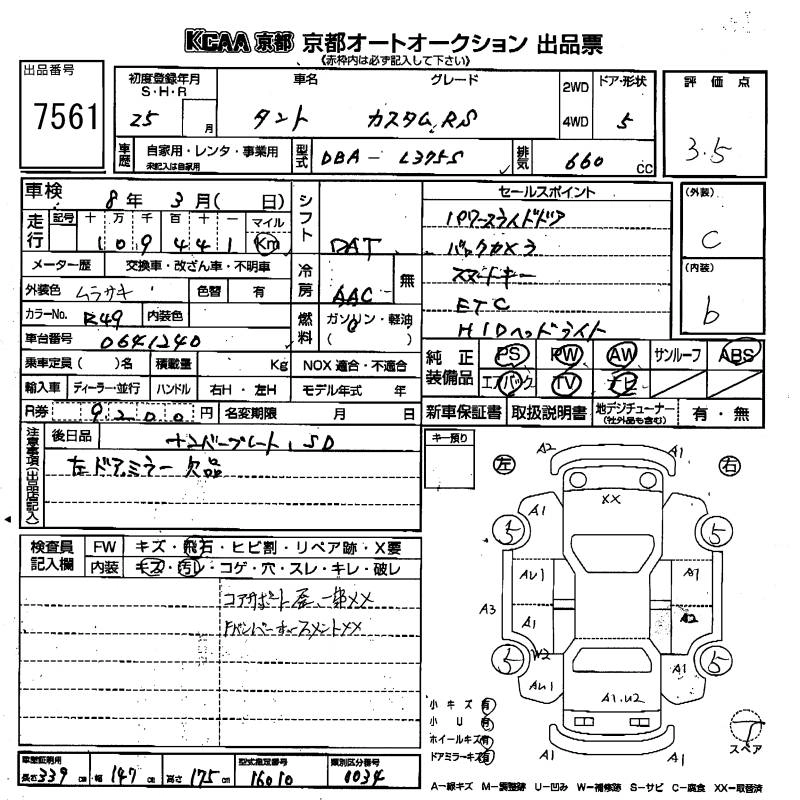 KCAA 京都 京都オートオークション 出品票
《赤枠内は必ず記入して下さい》
出品番号
7561
初度登録年月
S・H・R
25
月
車名
タント
グレード
カスタム RS
2WD
4WD
ドア・形状
5
評価点
3.5
車歴
自家用・レンタ・事業用
未記入は自家用
型式
DBA- L375S
排気
660
CC
車検
8年 3月( 日)
走行
記号 十 万 千 百 十 一 マイル
1 0 9 4 4 1 Km
メーター歴 交換車・改ざん車・不明車
外装色 ムラサキ 色替 有
カラーNo. R49 内装色
車台番号 0641240
乗車定員( )名 積載量 Kg NOX適合・不適合
輸入車 ディーラー・並行 ハンドル 右H・左H モデル年式 年
R券 9200円 名変期限 月 日
シフト
DAT
冷房
AAC
無
燃料
ガソリン・軽油
( )
セールスポイント
パワースライドドア
バックカメラ
スマートキー
ETC
HIDヘッドライト
(外装)
C
(内装)
b
純正装備品
PS PW AW サンルーフ ABS
エアバック TV ナビ
新車保証書 取扱説明書 地デジチューナー (社外品も含む) 有・無
注意事項(出品店記入)
後日品 ナンバープレート、SD
左ドアミラー欠品
キー預り
検査員記入欄
FW キズ・飛石・ヒビ割・リペア跡・X要
内装 キズ・汚レ・コゲ・穴・スレ・キレ・破レ
コアサポート 一部XX
左 右
A2 A1
XX
A1
5 5
AU1 A1
A3
A1 A2
W2
5 5
AU1 A1
A1.U2
A1 A1
小キズ 有
小U 有
ホイールキズ 有
ドアミラーキズ 有
スペア
車庫証明用
長さ 339 cm 幅 147 cm 高さ 175 cm
型式指定番号
16010
類別区分番号
0034
A−線キズ M−調整跡 U−凹み W−補修跡 S−サビ C−腐食 XX−取替済